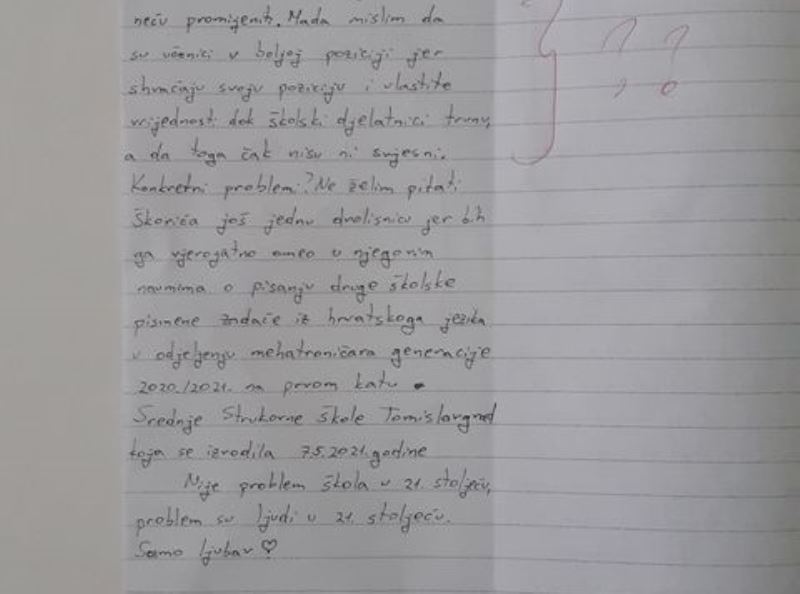 neću promijeniti. Mada mislim da
su učenici u boljoj poziciji jer
shvaćaju svoju poziciju i vlastite
vrijednosti dok školski djelatnici trunu,
a da toga čak nisu ni svjesni.
Konkretni problem? Ne želim pitati
Škorića još jednu dvolisnicu jer bih
ga vjerojatno omeo u njegovim
naumima o pisanju druge školske
pismene zadaće iz hrvatskoga jezika
u odjeljenju mehatroničara generacije
2020./2021. na prvom katu
Srednje Strukovne škole Tomislavgrad
koja se izrodila 7.5.2021. godine
Nije problem škola u 21. stoljeću,
problem su ljudi u 21. stoljeću.
Samo ljubav ♡
? ?